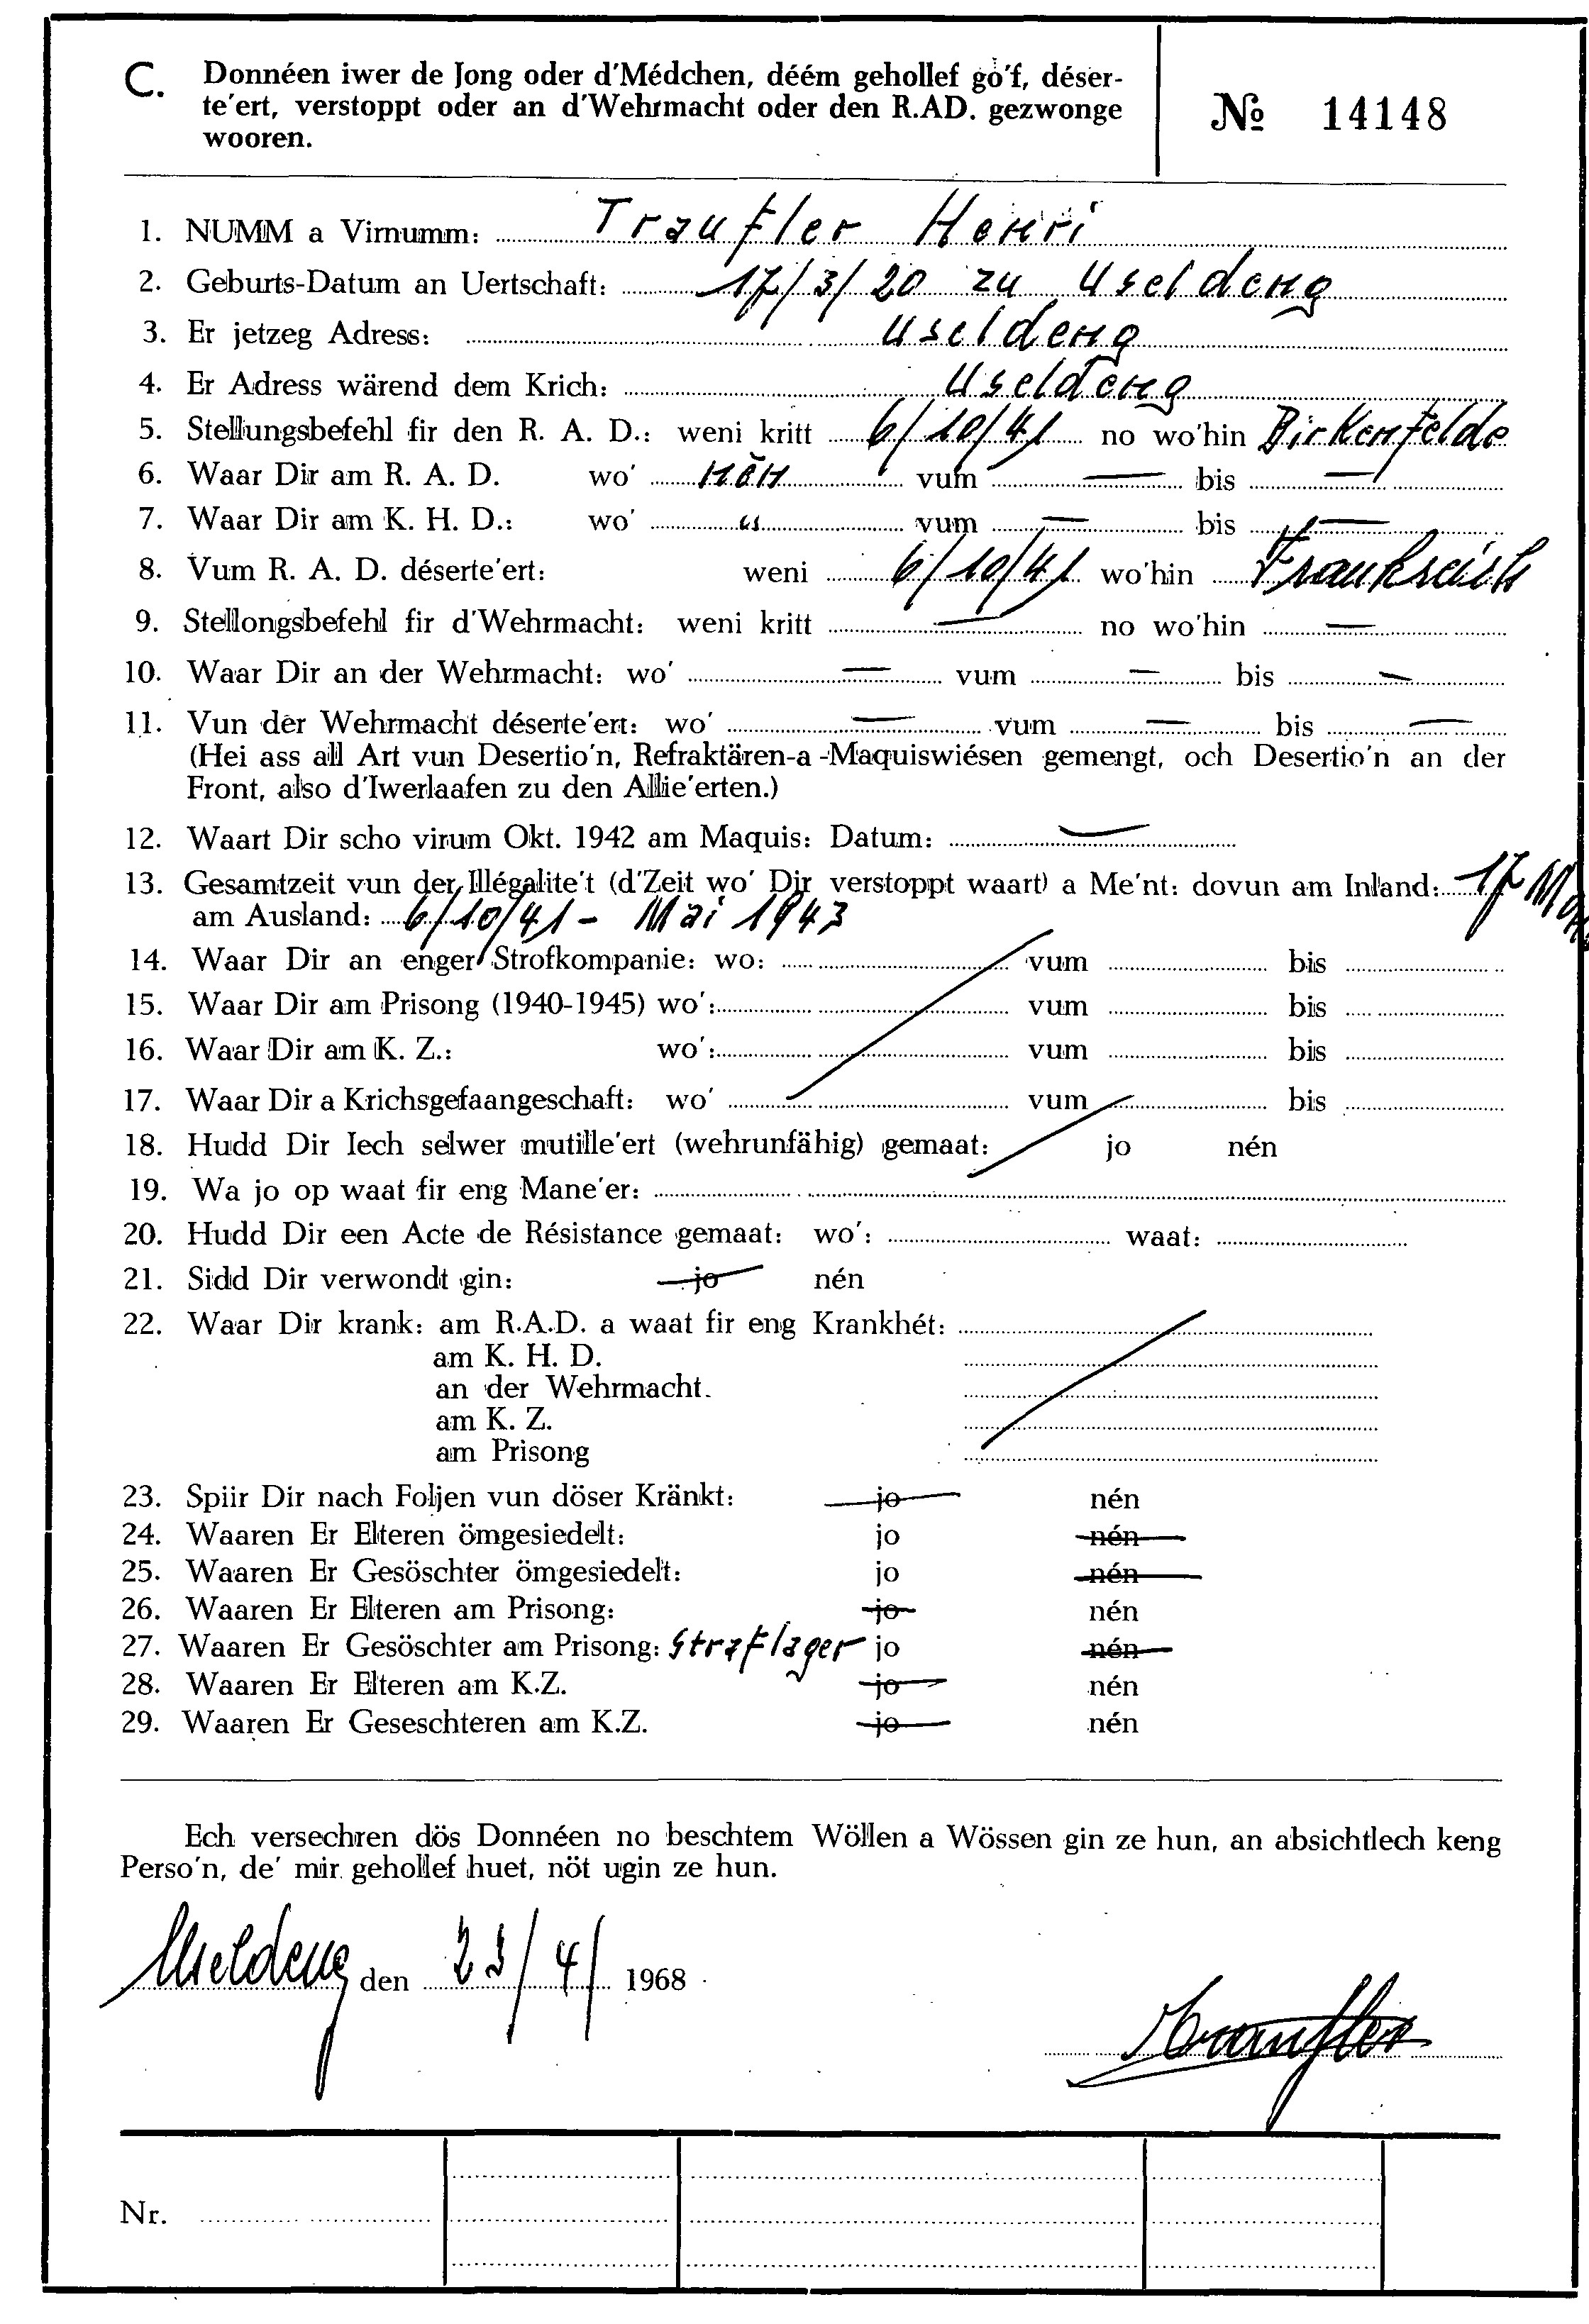 C. Donnéen iwer de Jong oder d'Médchen, déém gehollef go'f, déser-
te'ert, verstoppt oder an d'Wehrmacht oder den R.AD. gezwonge
wooren.
№ 14148
1. NUMM a Virnumm: Traufler Henri
2. Geburts-Datum an Uertschaft: 17/3/20 zu Useldeng
3. Er jetzeg Adress: Useldeng
4. Er Adress wärend dem Krich: Useldeng
5. Stellungsbefehl fir den R. A. D.: weni kritt 6/10/41 no wo'hin Birkenfelde
6. Waar Dir am R. A. D. wo' nён vum — bis —
7. Waar Dir am K. H. D.: wo' " vum — bis —
8. Vum R. A. D. déserte'ert: weni 6/10/41 wo'hin Frankreich
9. Stellongsbefehl fir d'Wehrmacht: weni kritt — no wo'hin —
10. Waar Dir an der Wehrmacht: wo' — vum — bis —
11. Vun der Wehrmacht déserte'ert: wo' — vum — bis —
(Hei ass all Art vun Desertio'n, Refraktären-a-Maquiswiésen gemengt, och Desertio'n an der
Front, also d'Iwerlaafen zu den Allie'erten.)
12. Waart Dir scho virum Okt. 1942 am Maquis: Datum: —
13. Gesamtzeit vun der Illégalite't (d'Zeit wo' Dir verstoppt waart) a Me'nt: dovun am Inland: 17 Mon
am Ausland: 6/10/41 - Mai 1943
14. Waar Dir an enger Strofkompanie: wo: vum bis
15. Waar Dir am Prisong (1940-1945) wo': vum bis
16. Waar Dir am K. Z.: wo': vum bis
17. Waar Dir a Krichsgefaangeschaft: wo' vum bis
18. Hudd Dir Iech selwer mutille'ert (wehrunfähig) gemaat: jo nén
19. Wa jo op waat fir eng Mane'er:
20. Hudd Dir een Acte de Résistance gemaat: wo': waat:
21. Sidd Dir verwondt gin: jo nén
22. Waar Dir krank: am R.A.D. a waat fir eng Krankhét:
am K. H. D.
an der Wehrmacht.
am K. Z.
am Prisong
23. Spiir Dir nach Foljen vun döser Kränkt: jo nén
24. Waaren Er Elteren ömgesiedelt: jo nén
25. Waaren Er Gesöschter ömgesiedelt: jo nén
26. Waaren Er Elteren am Prisong: jo nén
27. Waaren Er Gesöschter am Prisong: Straflager jo nén
28. Waaren Er Elteren am K.Z. jo nén
29. Waaren Er Geseschteren am K.Z. jo nén
Ech versechren dös Donnéen no beschtem Wöllen a Wössen gin ze hun, an absichtlech keng
Perso'n, de' mir gehollef huet, nöt ugin ze hun.
Useldeng den 23/4/ 1968
Traufler
Nr.